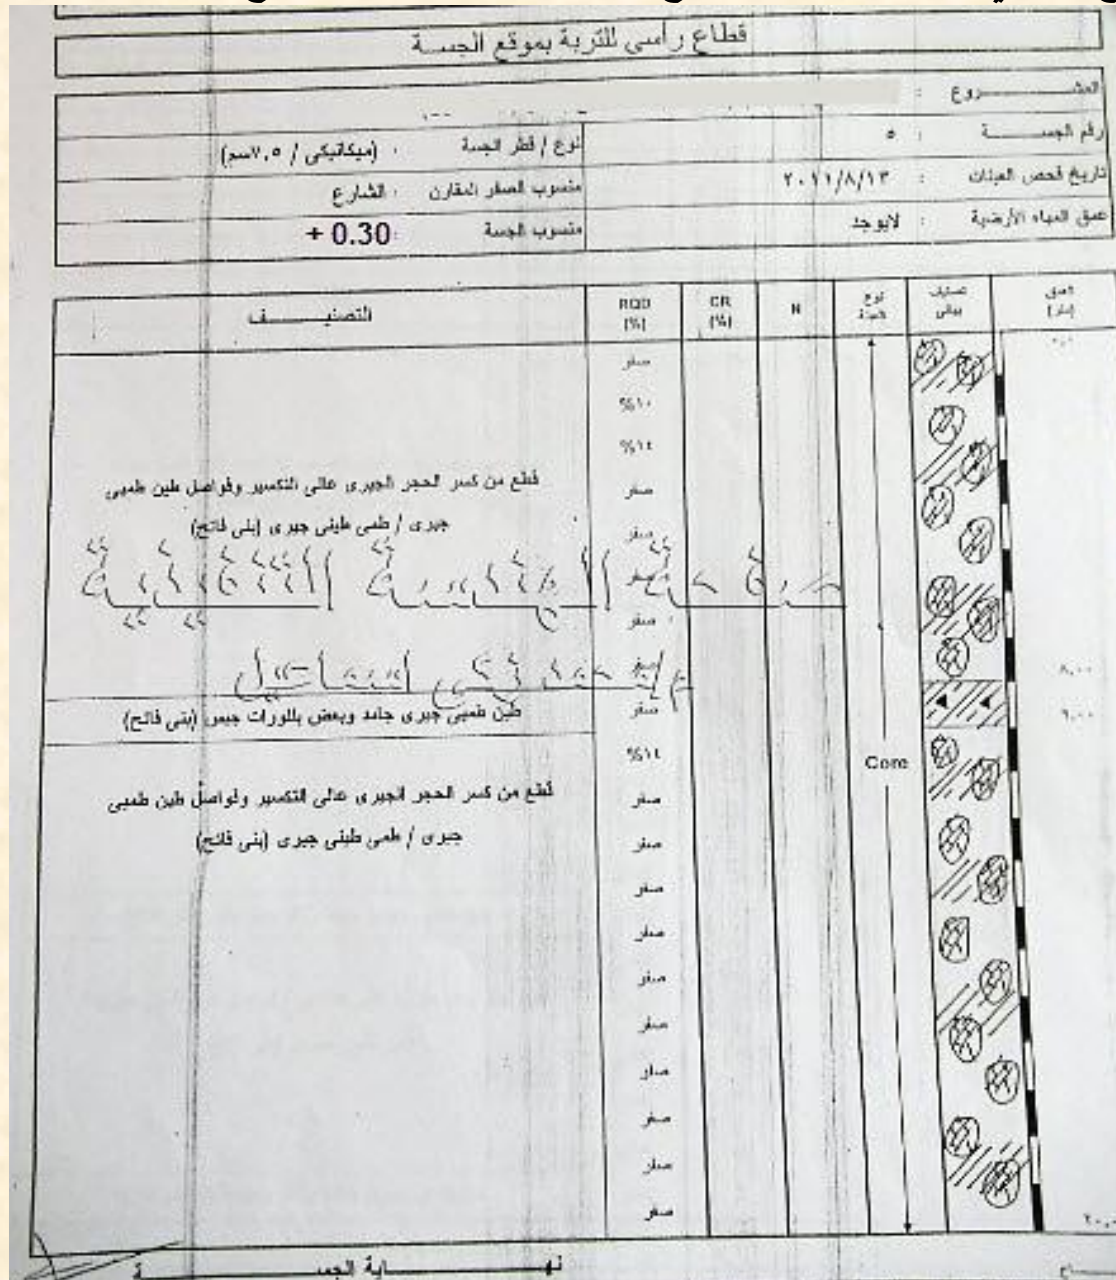 قطاع رأسى للتربة بموقع الجسة
المشـــــــروع :
رقم الجســــــة : ٥
نوع / قطر الجسة : (ميكانيكى / ٧,٥سم)
تاريخ فحص العينات : ٢٠١١/٨/١٣
منسوب الصفر المقارن : الشارع
عمق المياه الأرضية : لايوجد
منسوب الجسة : + 0.30
العمق (متر)
تصنيف بيانى
نوع العينة
N
CR (%)
RQD (%)
التصنيـــــــف
صفر
%١٠
%١٤
صفر
قطع من كسر الحجر الجيرى عالى التكسير وفواصل طين طميى
جيرى / طمى طينى جيرى (بنى فاتح)
صفر
صفر
صفر
صفر
٨,٠٠
طين طميى جيرى جامد وبعض بللورات جبس (بنى فاتح)
صفر
٩,٠٠
%١٤
Core
قطع من كسر الحجر الجيرى عالى التكسير وفواصل طين طميى
جيرى / طمى طينى جيرى (بنى فاتح)
صفر
صفر
صفر
صفر
صفر
صفر
صفر
صفر
صفر
صفر
نهـــــــاية الجســـــــة